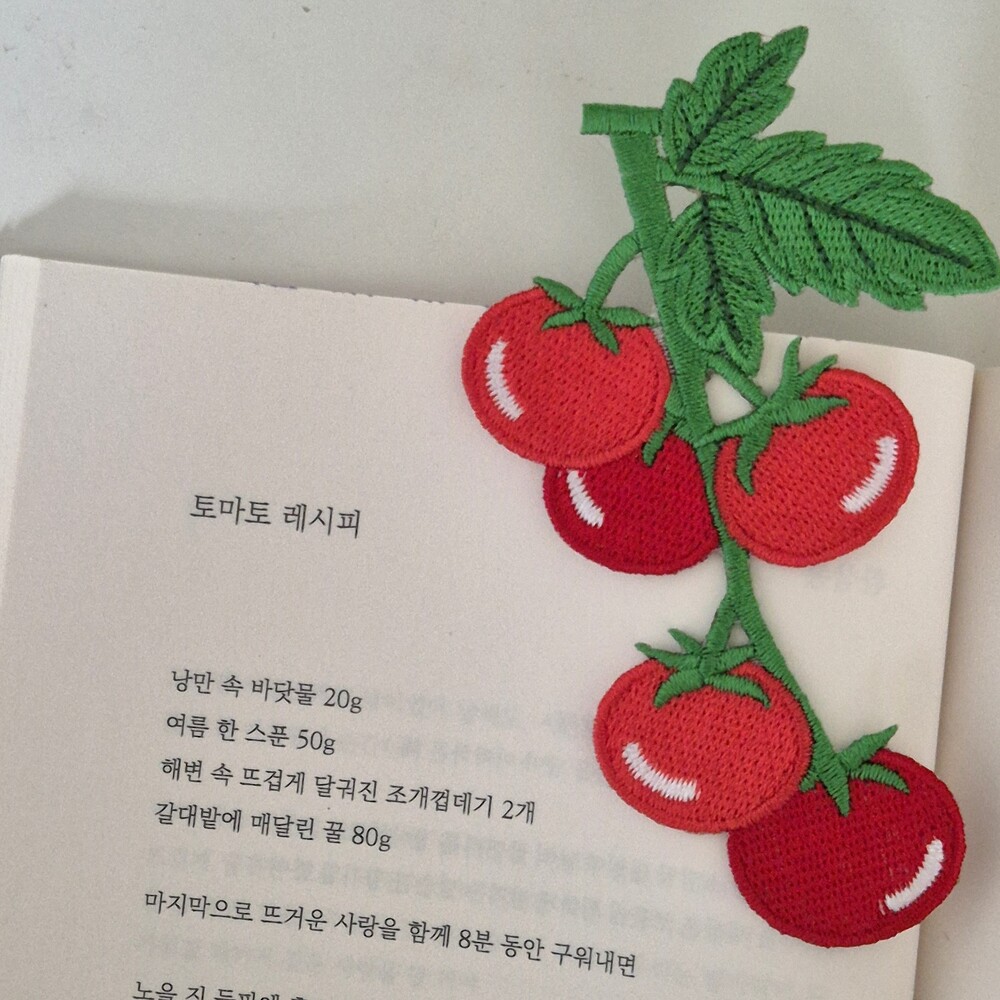 토마토 레시피
낭만 속 바닷물 20g
여름 한 스푼 50g
해변 속 뜨겁게 달궈진 조개껍데기 2개
갈대밭에 매달린 꿀 80g
마지막으로 뜨거운 사랑을 함께 8분 동안 구워내면
노을 진